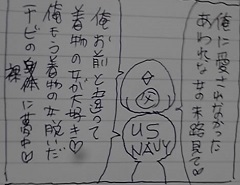 俺に愛されなかった
あわれな女の末路見て♡
US
NAVY
俺お前と違って
着物の女が大好き♡
俺もう着物の女脱いだ
チビの裸体に夢中♡